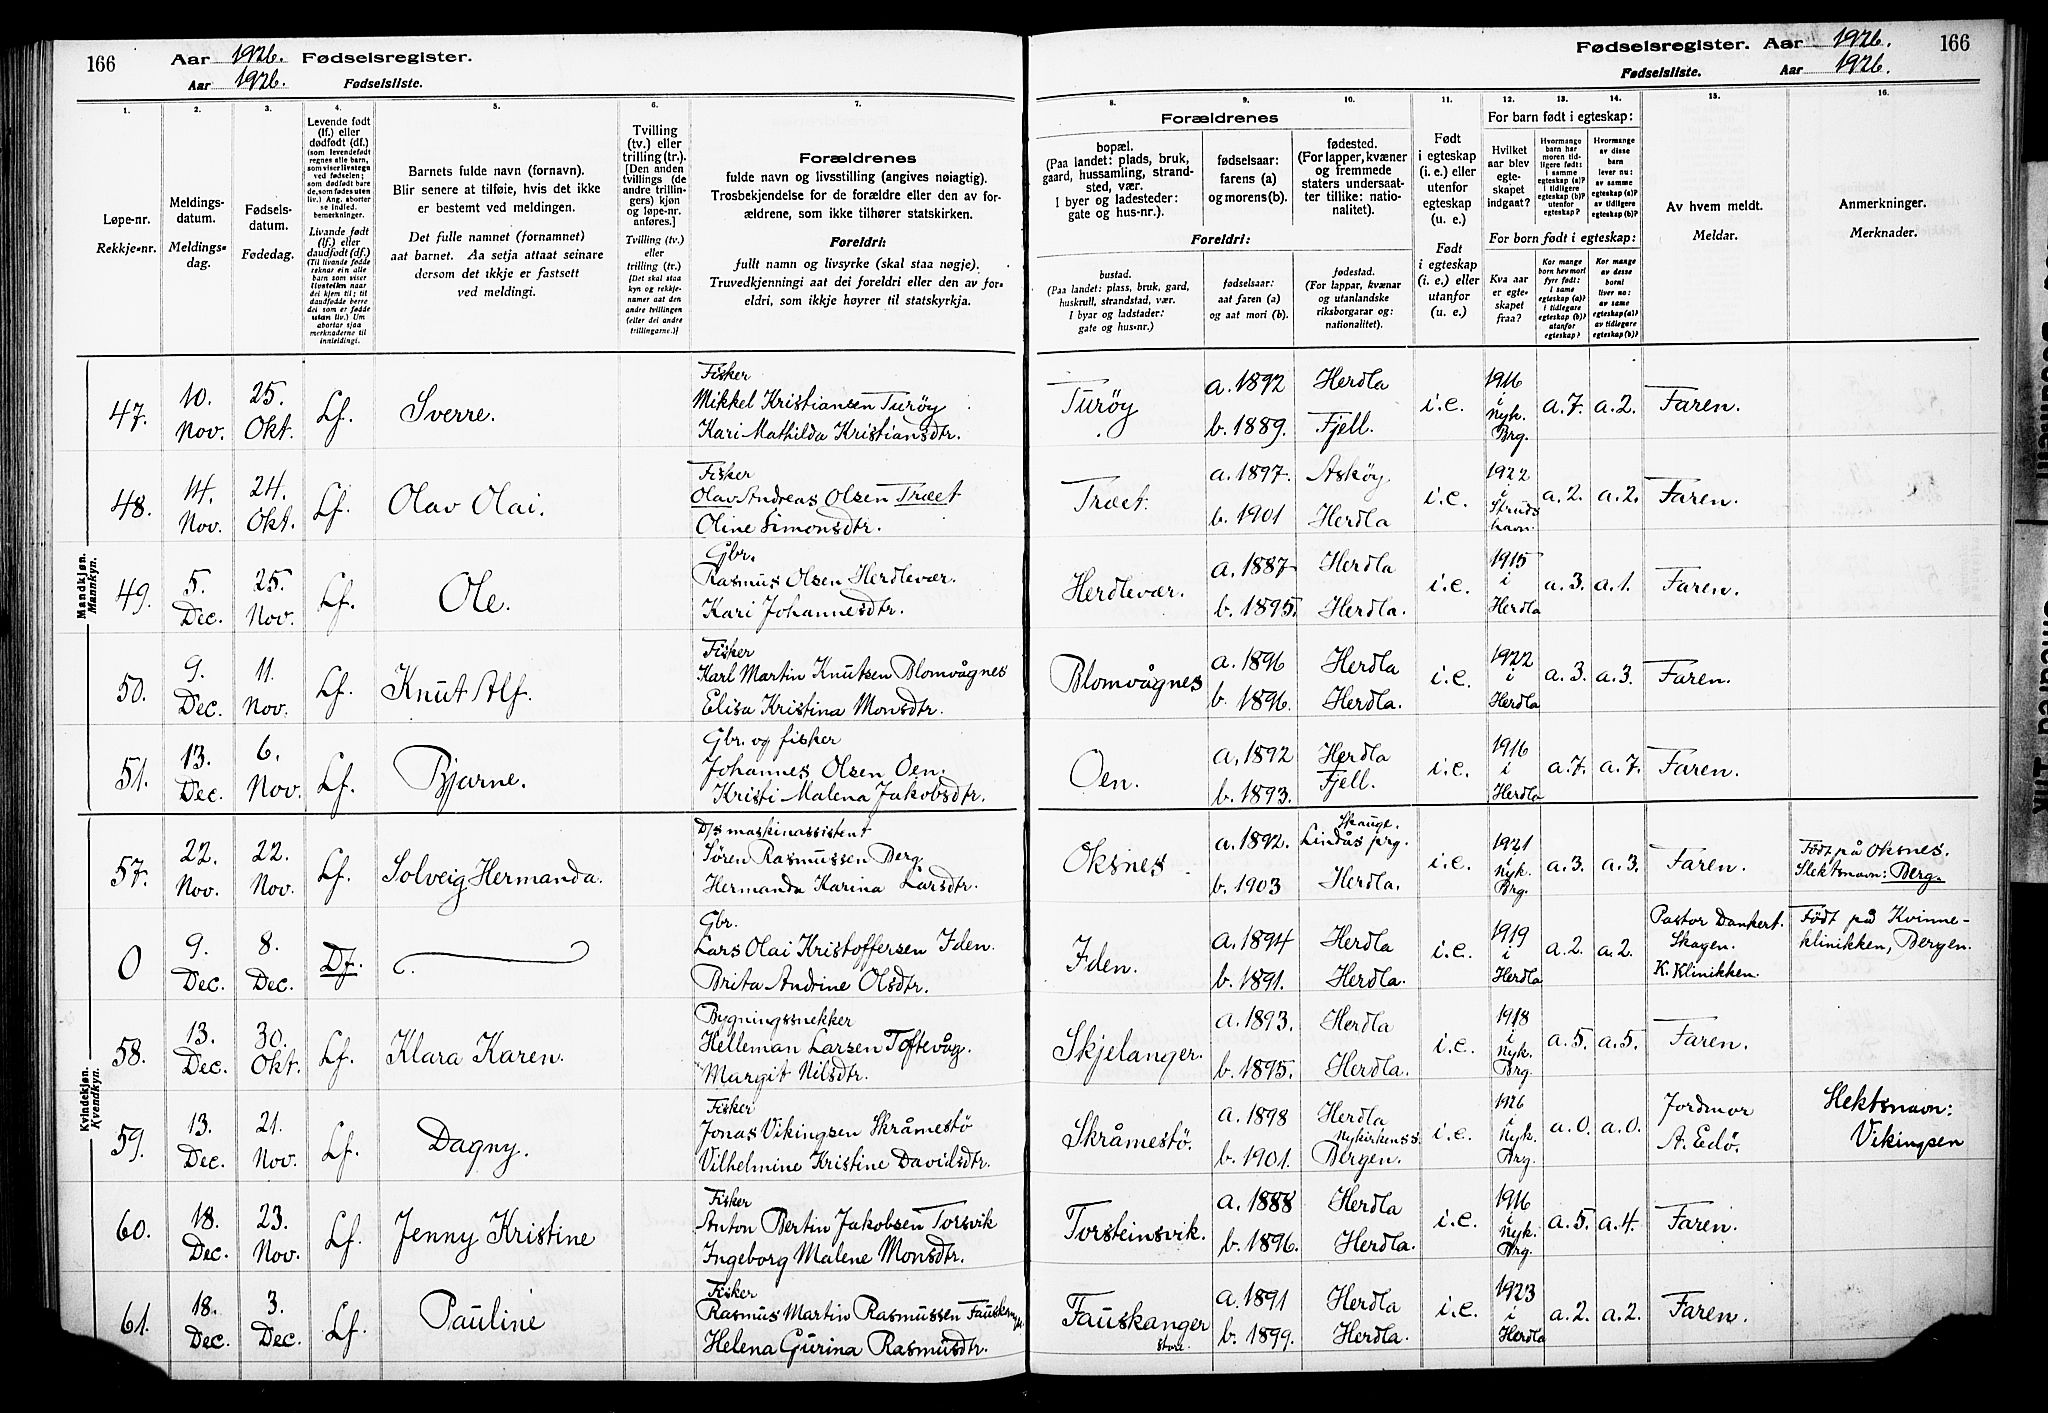 166 Aar 1926. Fødselsregister.
Aar 1926. Fødselsliste.
Fødselsregister. Aar 1926. 166
Fødselsliste. Aar 1926.
1. 2. 3. 4. 5. 6. 7.
Løpe-nr.
Rekkje-nr.
Meldings-
datum.
Meldings-
dag.
Fødsels-
datum.
Fødedag.
Levende født
(lf.) eller
dødfødt (df.)
Livande født
(lf.) eller
daudfødt (df.)
Barnets fulde navn (fornavn).
Blir senere at tilføie, hvis det ikke
er bestemt ved meldingen.
Det fulle namnet (fornamnet)
aat barnet. Aa setja attaat seinare
dersom det ikkje er fastsett
ved meldingi.
Tvilling
(tv.) eller
trilling (tr.).
[Den anden
tvillings (de
andre trillin-
gers) kjøn
og løpe-nr.
anføres.]
Tvilling (tv.)
eller
trilling (tr.)
[Det skal staa
kyn og rekkje-
numer aat den
andre tvillingen
(eller dei andre
trillingarne.)]
Forældrenes
fulde navn og livsstilling (angives nøiagtig).
Trosbekjendelse for de forældre eller den av for-
ældrene, som ikke tilhører statskirken.
Foreldri:
fullt namn og livsyrke (skal staa nøgje).
Truvedkjenningi aat dei foreldri eller den av for-
eldri, som ikkje høyrer til statskyrkja.
8. 9. 10. 11. 12. 13. 14. 15. 16.
Forældrenes
bopæl.
(Paa landet: plads, bruk,
gaard, hussamling, strand-
sted, vær.
I byer og ladesteder:
gate og hus-nr.)
fødselsaar:
farens (a)
og morens (b).
fødested.
(For lapper, kvæner
og fremmede
staters undersaat-
ter tillike: natio-
nalitet).
Foreldri:
bustad.
(Paa landet: plass, bruk, gard,
huskrull, strandstad, vær.
I byar og ladstader:
gate og hus-nr.)
fødselsaar:
aat faren (a)
og aat mori (b).
fødestad.
(For lappar, kvænar
og utanlandske
riksborgarar og:
nationalitet).
Født
i egteskap
(i. e.) eller
utenfor
egteskap
(u. e.)
Født
i egteskap
(i. e.) eller
utanfor
(u. e.)
For barn født i egteskap:
Hvilket
aar blev
egte-
skapet
indgaat?
Hvormange
barn har
moren tid-
ligere født:
i samme
egteskap (a)?
i tidligere
egteskap (b)?
utenfor
egteskap?
Hvormange
av disse
barn
lever nu:
av samme
egteskap (a)?
av tidligere
egteskap (b)?
For born født i egteskap:
Kva aar
er egte-
skapet
fraa?
Kor mange
born hev mori
fyrr født:
i same
egteskap (a)?
i tidlegare
egteskap (b)?
utanfor
egteskap?
Kor mange
av desse
borni
liver no:
av same
egteskap (a)?
av tidlegare
egteskap (b)?
Av hvem meldt.
Meldar.
Anmerkninger.
Merknader.
Mandkjøn.
Mannkyn.
47. 10. Nov. 25. Okt. Lf. Sverre. Fisker
Mikkel Kristiansen Turøy
Kari Mathilda Kristiansdtr.
Turøy a. 1892 Herdla i.e. 1916 i Nyk. Brg. a.7. a.2. Faren.
b. 1889. Fjell.
48. 14. Nov. 24. Okt. Lf. Olav Olai. Fisker
Olav Andreas Olsen Træet
Oline Simonsdtr.
Træet. a. 1897. Askøy. i.e. 1922 i Struds havn. a.2. a.2. Faren.
b. 1901 Herdla
49. 5. Dec. 25. Nov. Lf. Ole. Gbr.
Rasmus Olsen Herdlevær.
Kari Johannesdtr.
Herdlevær. a. 1887 Herdla i.e. 1915 i Herdla a.3. a.1. Faren.
b. 1895. Herdla.
50. 9. Dec. 11. Nov. Lf. Knut Alf. Fisker
Karl Martin Knutsen Blomvågnes
Elisa Kristina Monsdtr.
Blomvågnes a. 1896 Herdla i.e. 1922 i Herdla a.3. a.3. Faren.
b. 1896. Herdla.
51. 13. Dec. 6. Nov. Lf. Bjarne. Gbr. og fisker
Johannes Olsen Oen.
Kristi Malena Jakobsdtr.
Oen. a. 1892 Herdla i.e. 1916 i Herdla a.7. a.7. Faren.
b. 1893. Fjell.
Kvindekjøn.
Kvendkyn.
57. 22. Nov. 22. Nov. Lf. Solveig Hermanda. D/s maskinassistent
Søren Rasmussen Berg.
Hermanda Karina Larsdtr.
Oksnes a. 1892. Skauge. Lindås prg. i.e. 1921 i Nyk. Brg. a.3. a.3. Faren. Født på Oksnes.
b. 1903 Herdla. Slektsnavn: Berg.
0 9. Dec. 8. Dec. Df. Gbr.
Lars Olai Kristoffersen Iden.
Brita Andrine Olsdtr.
Iden. a. 1894 Herdla i.e. 1919 i Herdla a.2. a.2. Pastor Dankert. Skagen. K. Klinikken. Født på Kvinne-
b. 1891. Herdla. klinikken, Bergen.
58. 13. Dec. 30. Okt. Lf. Klara Karen. Bygningssnekker
Helleman Larsen Toftevåg.
Margit Nilsdtr.
Skjelanger. a. 1893. Herdla i.e. 1918 i Nyk. Brg. a.5. a.5. Faren.
b. 1895. Herdla.
59. 13. Dec. 21. Nov. Lf. Dagny. Fisker
Jonas Vikingsen Skråmestö
Vilhelmine Kristine Davidsdtr.
Skråmestö. a. 1898 Herdla i.e. 1926 i Nyk. Brg. a.0. a.0. Jordmor A. Edö. Slektsnavn:
b. 1901. Nykirkenss. Bergen. Vikingsen
60. 18. Dec. 23. Nov. Lf. Jenny Kristine Fisker
Anton Bertin Jakobsen Torsvik
Ingeborg Malene Monsdtr.
Torsteinsvik. a. 1888 Herdla i.e. 1916 i Nyk. Brg. a.5. a.4. Faren.
b. 1896. Herdla.
61. 18. Dec. 3. Dec. Lf. Pauline Fisker
Rasmus Martin Rasmussen Fauskanger
Helena Gurina Rasmusdtr.
Fauskanger store. a. 1891 Herdla i.e. 1923 i Herdla a.2. a.2. Faren.
b. 1899. Herdla.